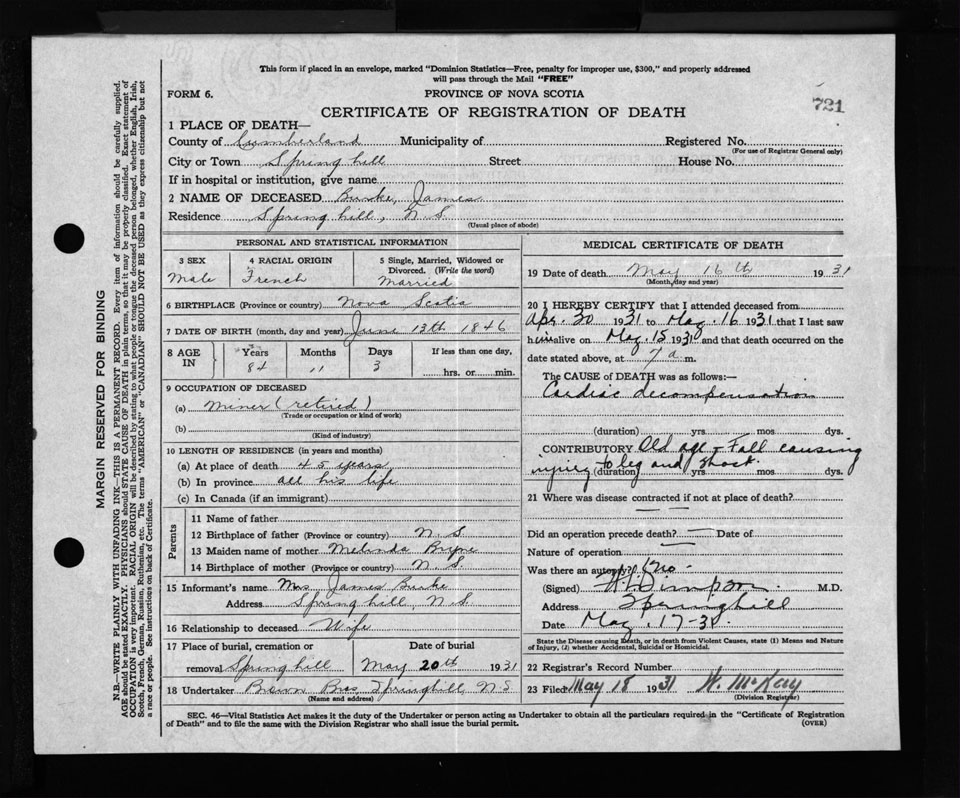 This form if placed in an envelope, marked "Dominion Statistics—Free, penalty for improper use, $300," and properly addressed
will pass through the Mail "FREE"
FORM 6.
PROVINCE OF NOVA SCOTIA
721
CERTIFICATE OF REGISTRATION OF DEATH
1 PLACE OF DEATH—
County of Cumberland Municipality of Registered No.
(For use of Registrar General only)
City or Town Spring hill Street House No.
If in hospital or institution, give name
2 NAME OF DECEASED Burke, James
Residence Spring hill, N. S.
(Usual place of abode)
PERSONAL AND STATISTICAL INFORMATION
3 SEX
Male
4 RACIAL ORIGIN
French
5 Single, Married, Widowed or
Divorced. (Write the word)
Married
6 BIRTHPLACE (Province or country) Nova Scotia
7 DATE OF BIRTH (month, day and year) June 13th 1846
8 AGE IN
Years
84
Months
11
Days
3
If less than one day,
hrs. or min.
9 OCCUPATION OF DECEASED
(a) Miner (retired)
(Trade or occupation or kind of work)
(b)
(Kind of industry)
10 LENGTH OF RESIDENCE (in years and months)
(a) At place of death 45 years
(b) In province all his life
(c) In Canada (if an immigrant)
Parents
11 Name of father
12 Birthplace of father (Province or country) N. S.
13 Maiden name of mother Melinda
14 Birthplace of mother (Province or country) N. S.
15 Informant's name Mrs James Burke
Address Spring hill, N. S.
16 Relationship to deceased Wife
17 Place of burial, cremation or
removal Spring hill
Date of burial
May 20th 1931
18 Undertaker Brown Bros, Springhill, N S
(Name and address)
MEDICAL CERTIFICATE OF DEATH
19 Date of death May 16th 1931
(Month, day and year)
20 I HEREBY CERTIFY that I attended deceased from
Apr. 30 1931 to May. 16 1931 that I last saw
him alive on May. 15 1931 and that death occurred on the
date stated above, at 7 a m.
The CAUSE of DEATH was as follows:—
Cardiac decompensation
(duration) yrs mos dys.
CONTRIBUTORY Old age – Fall causing
injury to leg and shock.
(duration) yrs. mos. dys.
21 Where was disease contracted if not at place of death?
Did an operation precede death? Date of
Nature of operation
Was there an autopsy? no
(Signed) M.D.
Address Springhill
Date May. 17-31
State the Disease causing Death, or in death from Violent Causes, state (1) Means and Nature
of Injury, (2) whether Accidental, Suicidal or Homicidal.
22 Registrar's Record Number
23 Filed May 18 1931 W. McKay
(Division Registrar)
SEC. 46—Vital Statistics Act makes it the duty of the Undertaker or person acting as Undertaker to obtain all the particulars required in the "Certificate of Registration
of Death" and to file the same with the Division Registrar who shall issue the burial permit.
(OVER)
MARGIN RESERVED FOR BINDING
N.B.—WRITE PLAINLY WITH UNFADING INK—THIS IS A PERMANENT RECORD. Every item of information should be carefully supplied.
AGE should be stated EXACTLY. PHYSICIANS should STATE CAUSE OF DEATH in plain terms, so that it may be properly classified. Exact statement of
OCCUPATION is very important. RACIAL ORIGIN will be described by stating to what people or tongue the deceased person belonged, whether English, Irish,
Scotch, French, German, Russian, Ruthenian, etc. The terms "AMERICAN" or "CANADIAN" SHOULD NOT BE USED as they express citizenship but not
a race or people. See instructions on back of Certificate.